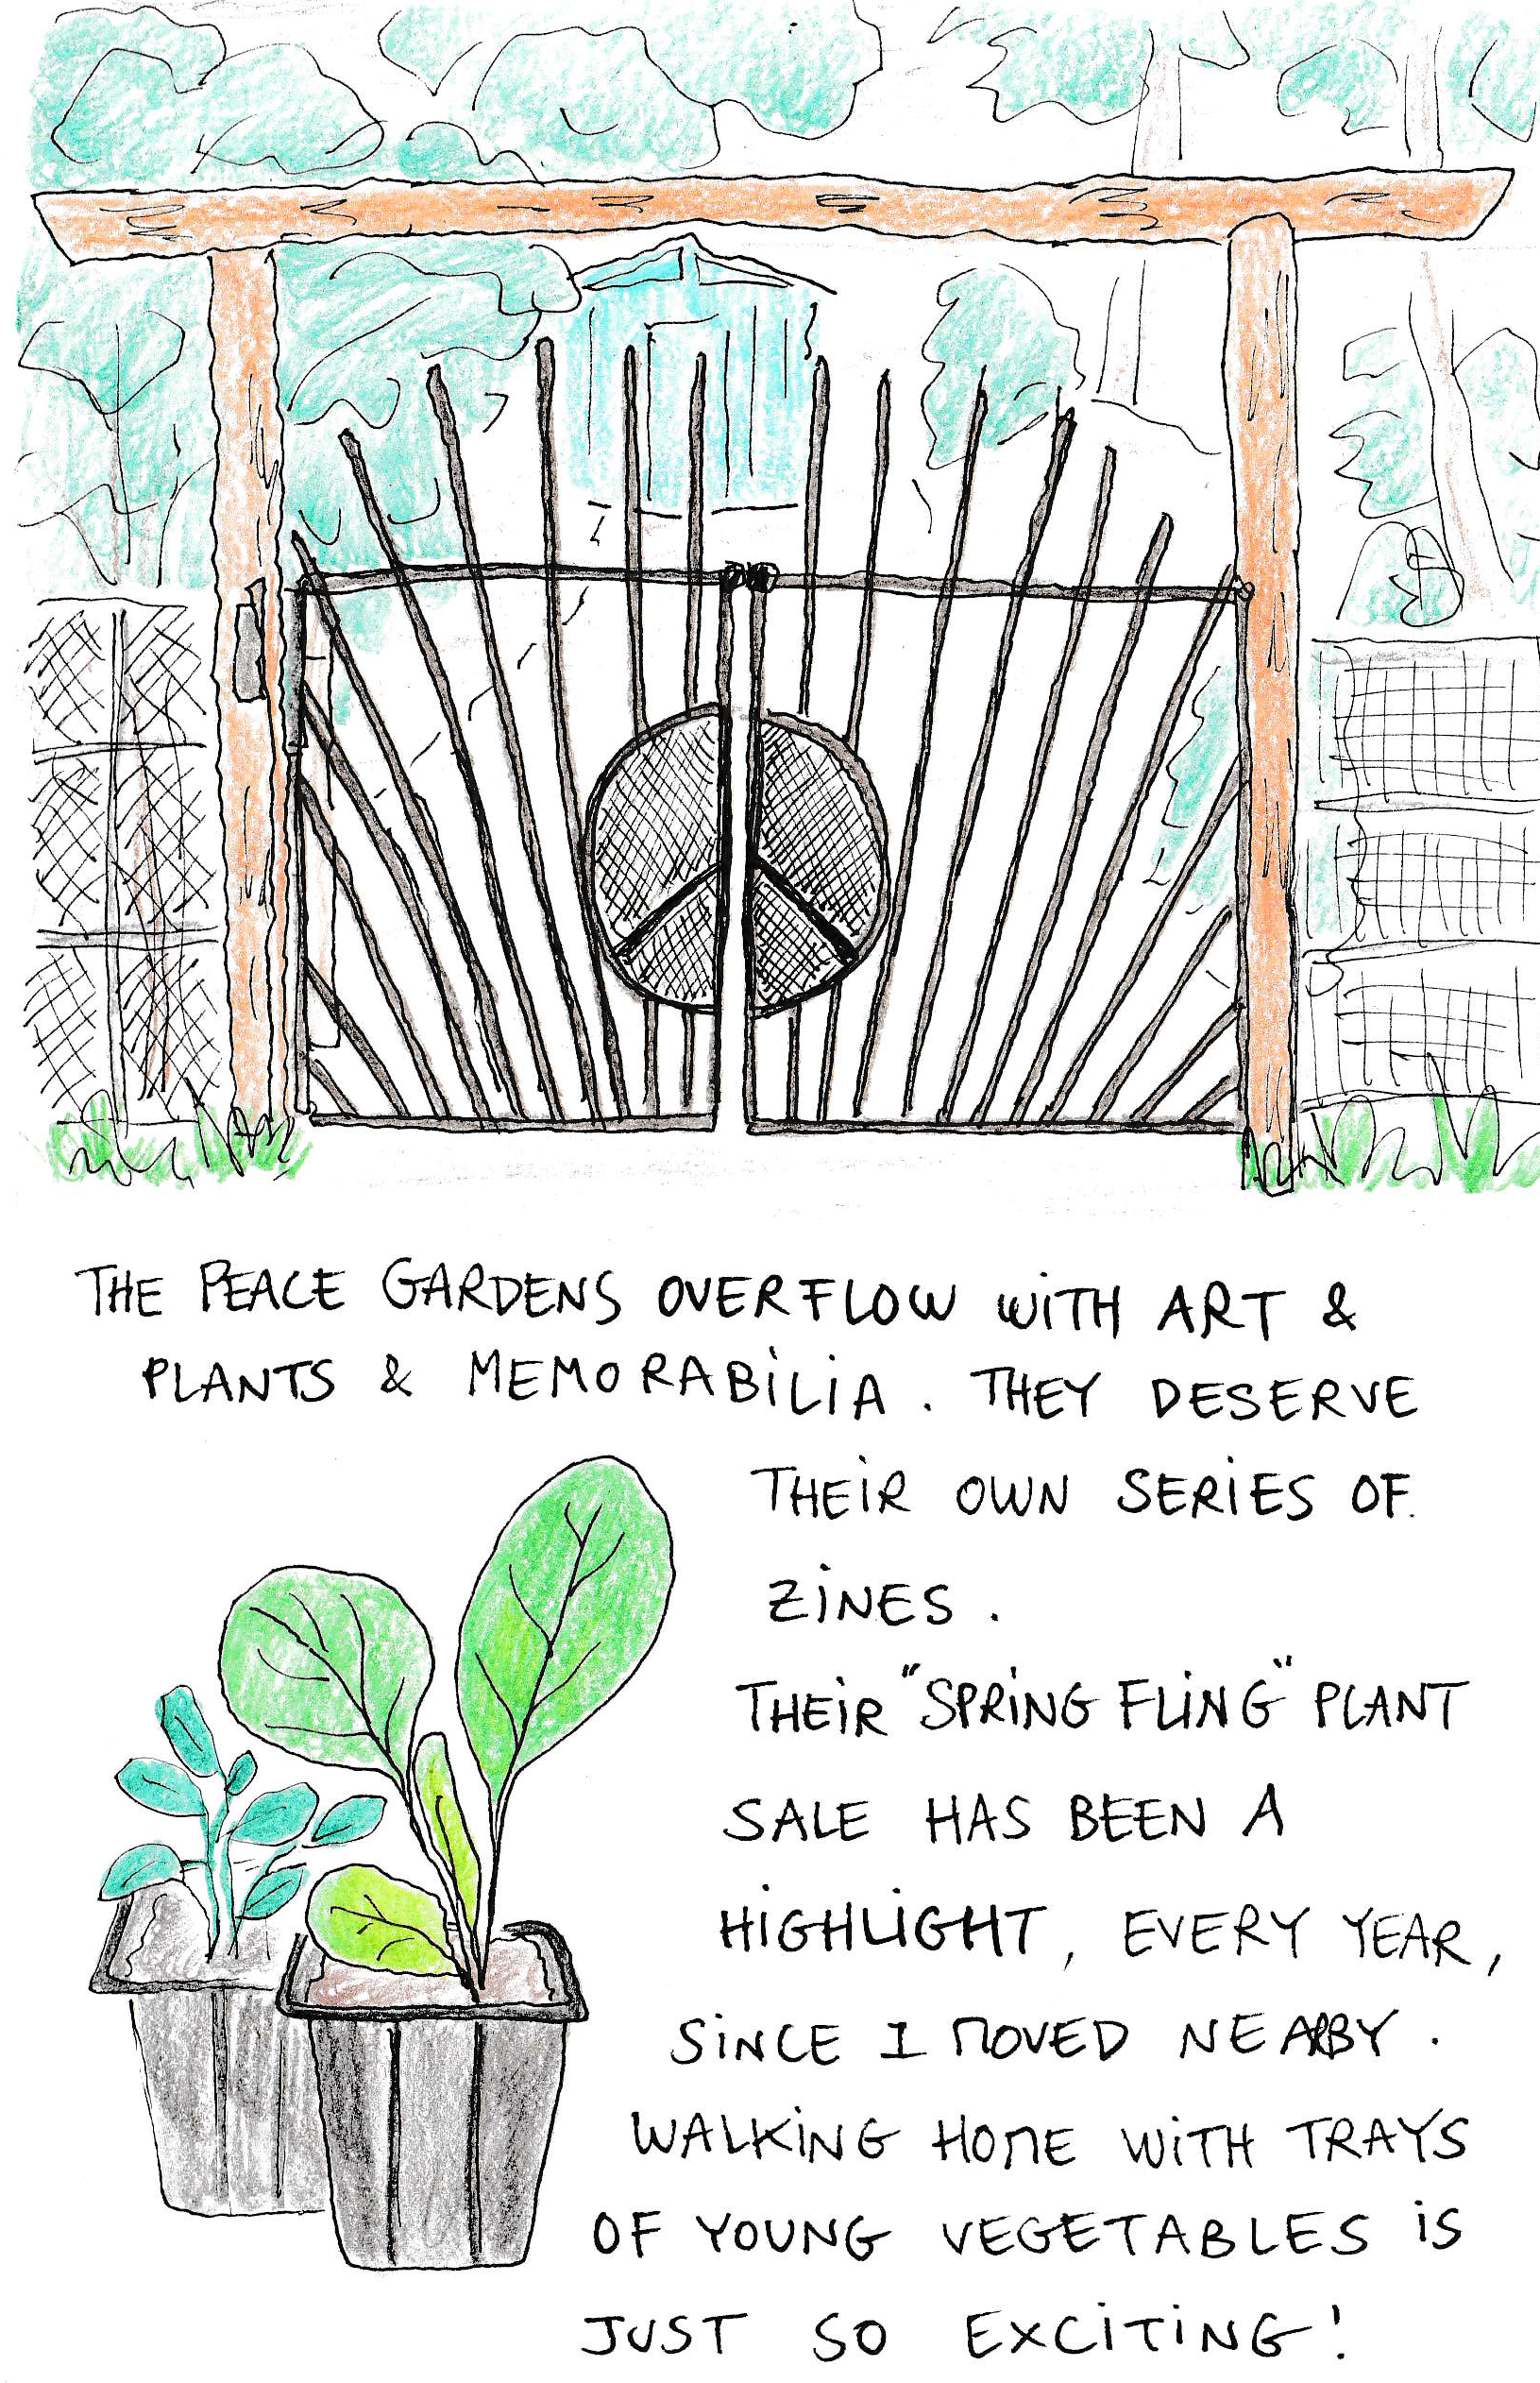 THE PEACE GARDENS OVERFLOW WITH ART &
PLANTS & MEMORABILIA. THEY DESERVE
THEIR OWN SERIES OF
ZINES.
THEIR "SPRING FLING" PLANT
SALE HAS BEEN A
HIGHLIGHT, EVERY YEAR,
SINCE I MOVED NEARBY.
WALKING HOME WITH TRAYS
OF YOUNG VEGETABLES IS
JUST SO EXCITING!